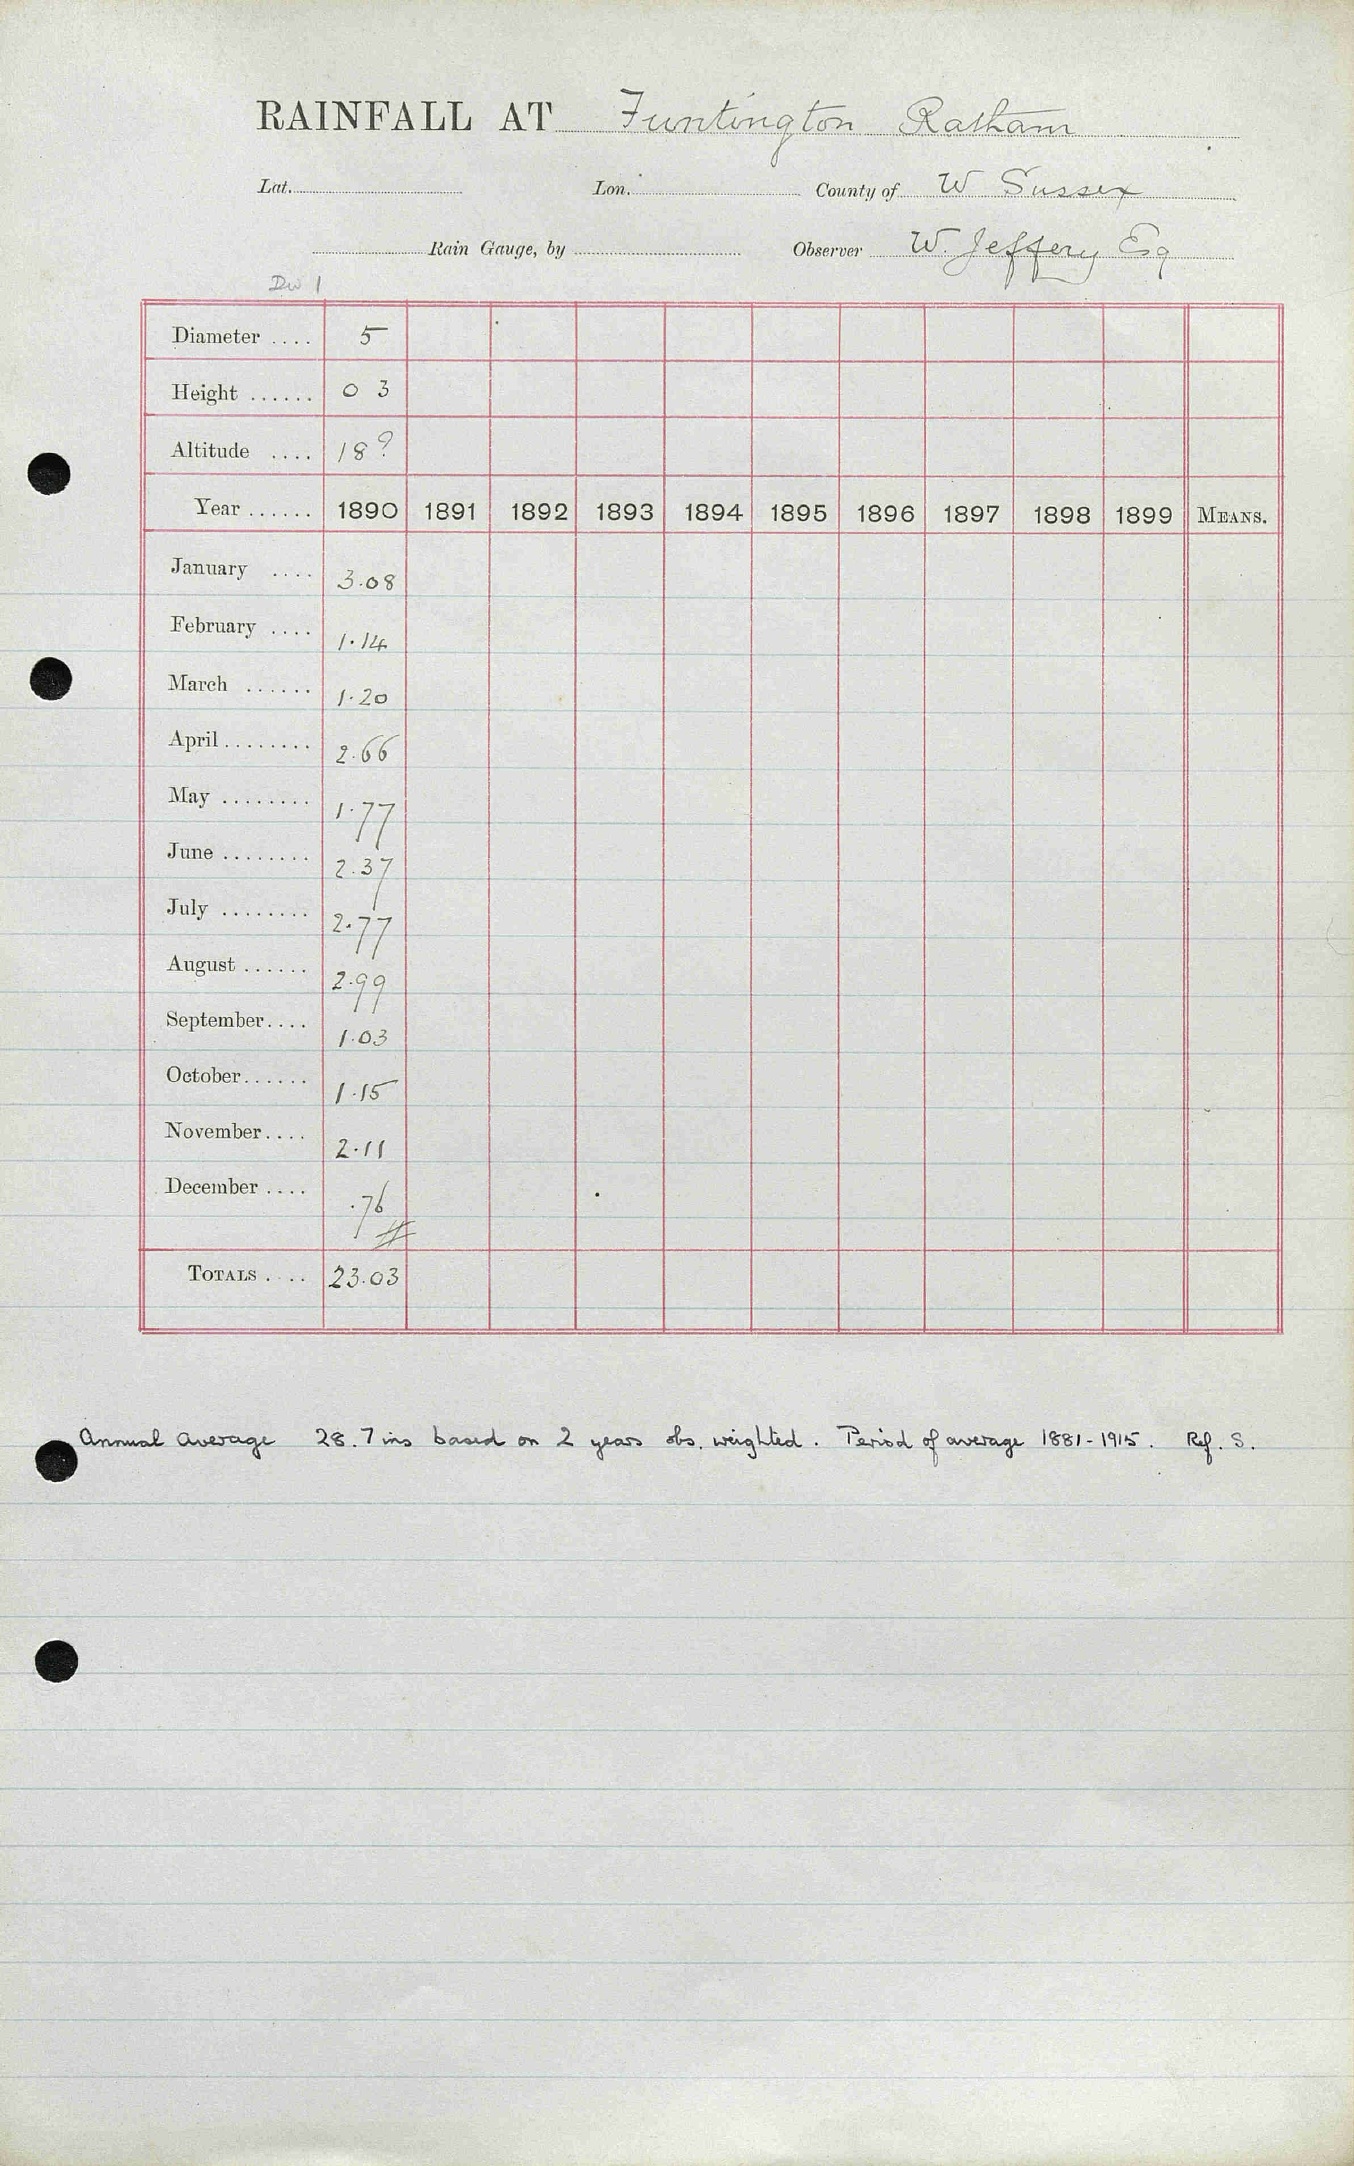 RAINFALL AT Funtington Ratham
Lat. Lon. County of W Sussex
Rain Gauge, by Observer W. Jeffery Esq
Div 1
Diameter .... 5
Height ...... 0 3
Altitude .... 18?
Year ...... 1890 1891 1892 1893 1894 1895 1896 1897 1898 1899 MEANS.
January .... 3.08
February .... 1.14
March ...... 1.20
April ........ 2.66
May ........ 1.77
June ........ 2.37
July ........ 2.77
August ...... 2.99
September.... 1.03
October...... 1.15
November.... 2.11
December .... .76
TOTALS .... 23.03
Annual Average 28.7 ins based on 2 years obs. weighted. Period of average 1881-1915. Ref. S.